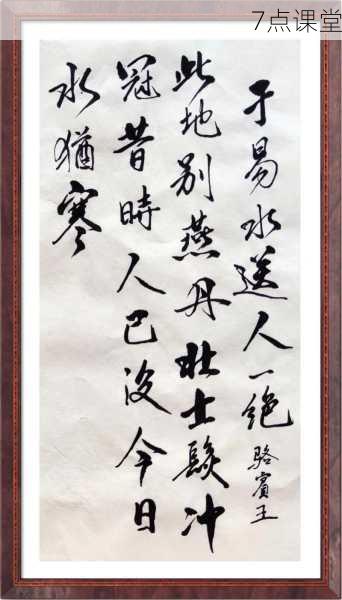 7点课堂
于易水送人一绝 骆賓王
此地别燕丹壮士髮冲
冠昔時人已没今日
水猶寒